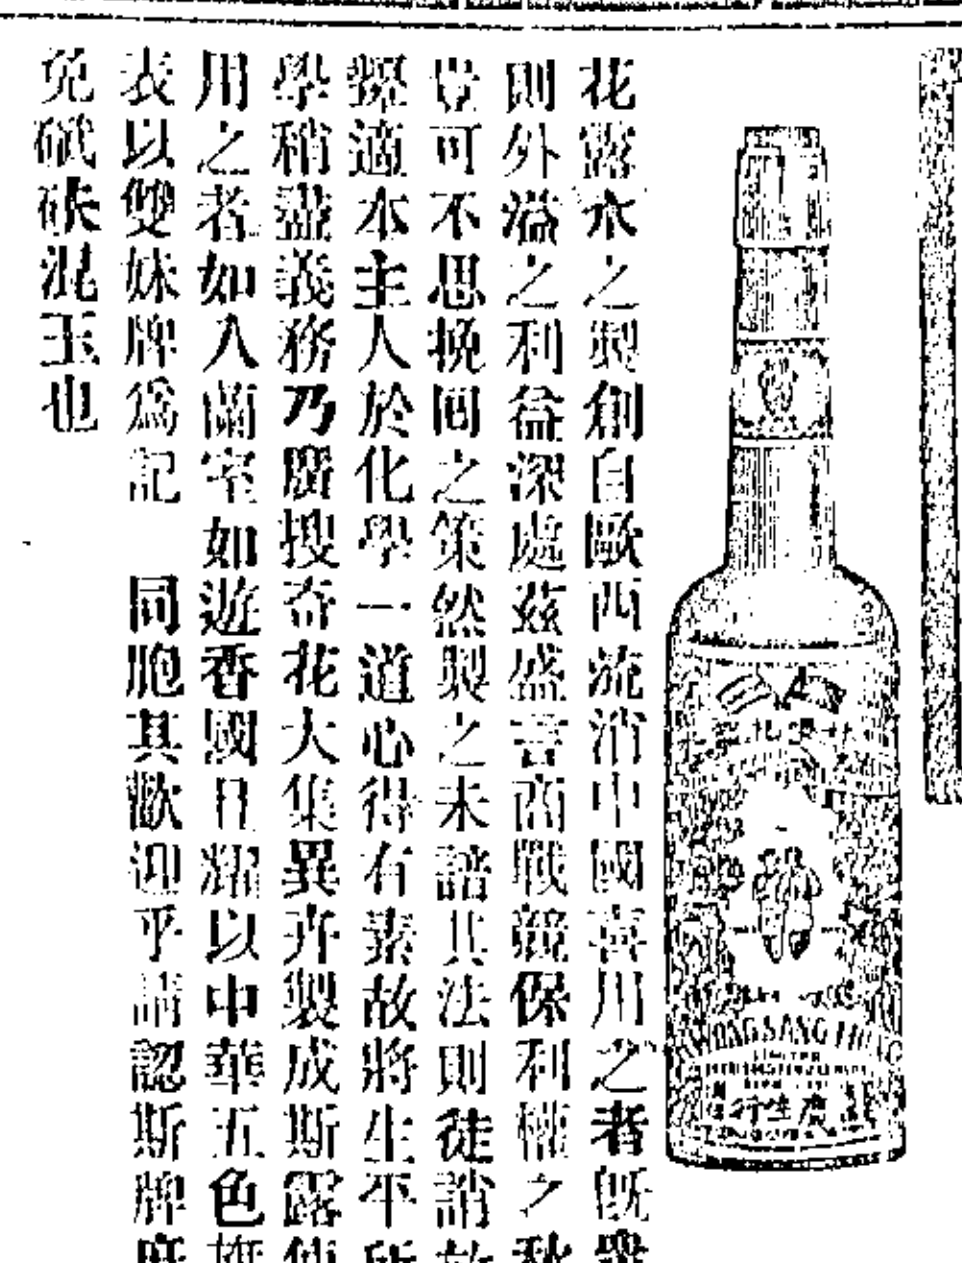 花露水之製創自歐西流消中國喜用之者旣衆
則外溢之利益深處茲盛言商戰競保利權之秋
豈可不思挽回之策然製之未諳其法則徒誚故
適本主人於化學一道心得有素故將生平所
學稍盡義務乃廣搜奇花大集異卉製成斯露俾
用之者如入蘭室如遊香國日耀以中華五色旗
表以雙妹牌爲記 同胞其歡迎乎請認斯牌庶
免碔砆混玉也
KWONG SANG HONG
LIMITED
廣生行